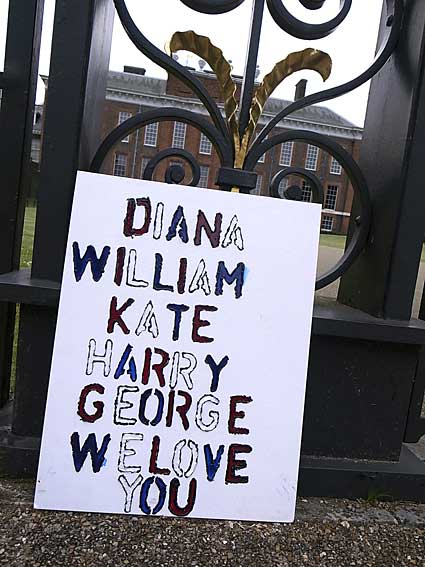 DIANA
WILLIAM
KATE
HARRY
GEORGE
WE LOVE
YOU